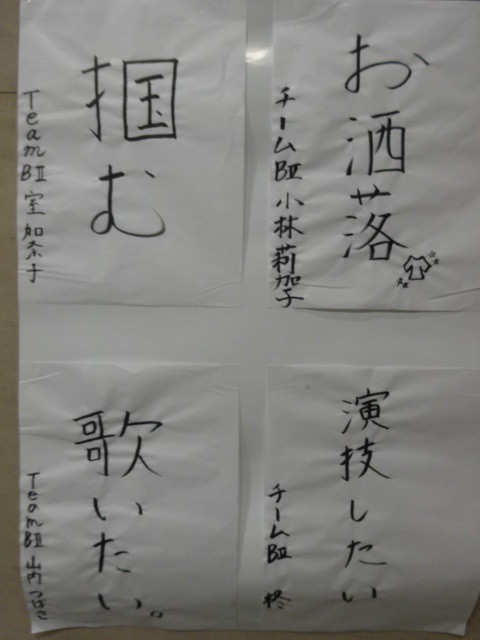 お洒落
チームBⅡ 小林莉加子
掴む
TeamBⅡ 室加奈子
演技したい
チームBⅡ 柊
歌いたい。
TeamBⅡ 山内つばさ